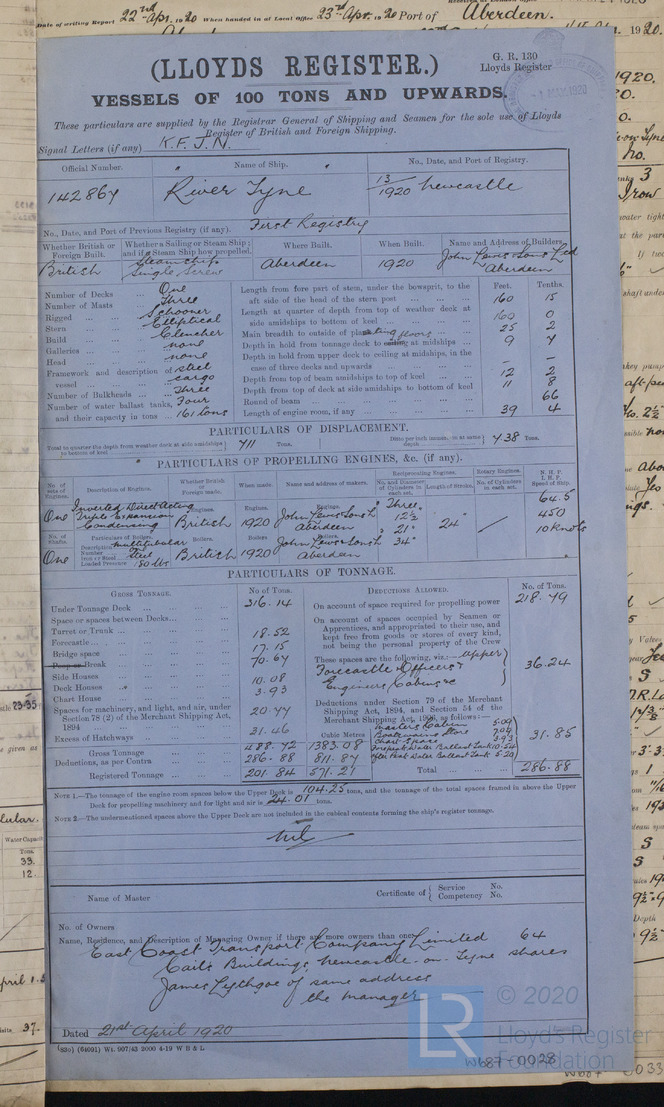 Date of writing Report 22nd Apr. 1920 When handed in at Local Office 23rd Apr. 1920 Port of Aberdeen.
G. R. 130
Lloyds Register
(LLOYDS REGISTER.)
VESSELS OF 100 TONS AND UPWARDS.
These particulars are supplied by the Registrar General of Shipping and Seamen for the sole use of Lloyds
Register of British and Foreign Shipping.
Signal Letters (if any) K.F.J.N.
Official Number. Name of Ship. No., Date, and Port of Registry.
142864 River Tyne 13/1920 Newcastle
No., Date, and Port of Previous Registry (if any). First Registry
Whether British or Foreign Built. Whether a Sailing or Steam Ship; and if a Steam Ship how propelled. Where Built. When Built. Name and Address of Builders.
British Steamship Single Screw Aberdeen 1920 John Lewis & Sons Ltd Aberdeen
Feet. Tenths.
Number of Decks ... One
Number of Masts Three
Rigged ... Schooner
Stern ... Elliptical
Build Clencher
Galleries ... none
Head none
Framework and description of vessel ... steel cargo
Number of Bulkheads ... Three
Number of water ballast tanks, and their capacity in tons ... Four 161 tons
Length from fore part of stem, under the bowsprit, to the aft side of the head of the stern post 160 15
Length at quarter of depth from top of weather deck at side amidships to bottom of keel 160 0
Main breadth to outside of plating 25 2
Depth in hold from tonnage deck to ceiling floors at midships 9 7
Depth in hold from upper deck to ceiling at midships, in the case of three decks and upwards – –
Depth from top of beam amidships to top of keel 12 2
Depth from top of deck at side amidships to bottom of keel 11 8
Round of beam 66
Length of engine room, if any 39 4
PARTICULARS OF DISPLACEMENT.
Total to quarter the depth from weather deck at side amidships to bottom of keel 711 Tons. Ditto per inch immersion at same depth 7.38 Tons.
PARTICULARS OF PROPELLING ENGINES, &c. (if any).
No. of sets of Engines. Description of Engines. Whether British or Foreign made. When made. Name and address of makers. Reciprocating Engines. No. and Diameter of Cylinders in each set. Length of stroke. Rotary Engines. No. of Cylinders in each set. N. H. P. I. H. P. Speed of Ship.
One Inverted Direct Acting Triple Expansion Condensing British 1920 John Lewis & Sons Ld Aberdeen Three, 12½" 21" 34" 24" 64.5 450 10 knots
No. of Shafts. Particulars of Boilers. Description Multitubular Number Iron or Steel Steel Loaded Pressure 180 lbs
One British 1920 John Lewis & Sons Ld Aberdeen
PARTICULARS OF TONNAGE.
GROSS TONNAGE. No. of Tons. DEDUCTIONS ALLOWED. No. of Tons.
Under Tonnage Deck 316.14
Space or spaces between Decks
Turret or Trunk
Forecastle 18.52
Bridge space 17.15
Poop or Break 70.67
Side Houses
Deck Houses 10.08
Chart House 3.93
Spaces for machinery, and light, and air, under Section 78 (2) of the Merchant Shipping Act, 1894 20.77
Excess of Hatchways 31.46
Gross Tonnage 488.72 Cubic Metres 1383.08
Deductions, as per Contra 286.88 811.87
Registered Tonnage 201.84 571.21
On account of space required for propelling power 218.79
On account of spaces occupied by Seamen or Apprentices, and appropriated to their use, and kept free from goods or stores of every kind, not being the personal property of the Crew
These spaces are the following, viz.:— Upper Forecastle, Officers & Engineers Cabins &c 36.24
Deductions under Section 79 of the Merchant Shipping Act, 1894, and Section 54 of the Merchant Shipping Act, 1906, as follows:—
Masters Cabin 5.09
Boatswains Store 7.09
Chart Space 3.93
Forepeak Water Ballast Tank 10.54
After Peak Water Ballast Tank 5.20
31.85
Total 286.88
NOTE 1.—The tonnage of the engine room spaces below the Upper Deck is 104.25 tons, and the tonnage of the total spaces framed in above the Upper
Deck for propelling machinery and for light and air is 24.01 tons.
NOTE 2.—The undermentioned spaces above the Upper Deck are not included in the cubical contents forming the ship's register tonnage.
nil
Name of Master Certificate of { Service No. Competency No.
No. of Owners
Name, Residence, and Description of Managing Owner if there are more owners than one
East Coast Transport Company Limited 64
Cail's Buildings, Newcastle-on-Tyne shares
James Lythgoe of same address
the manager
Dated 21st April 1920
(830) (64091) Wt. 007/43 2000 4-19 W B & L
© 2020
LR Lloyd's Register
Foundation
W687-0028